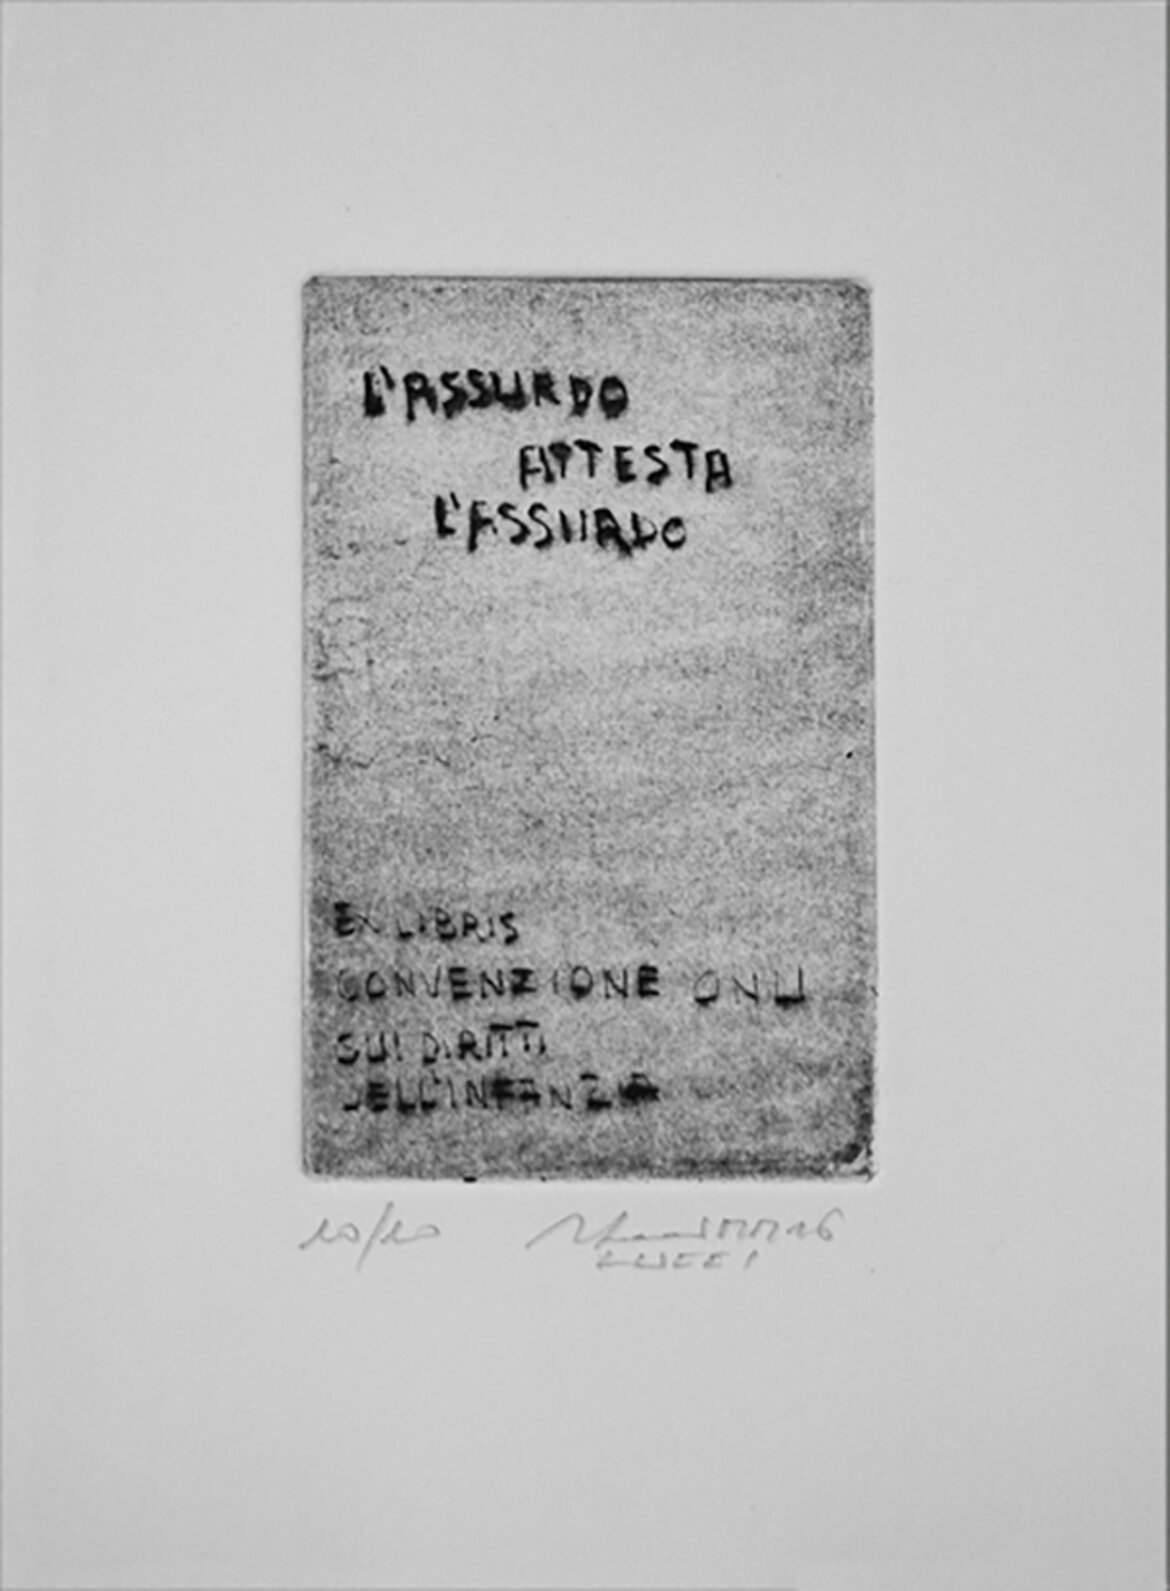 L'ASSURDO
ATTESTA
L'ASSURDO
EX LIBRIS
CONVENZIONE ONU
SUI DIRITTI
DELL'INFANZIA
10/10
LUCCI